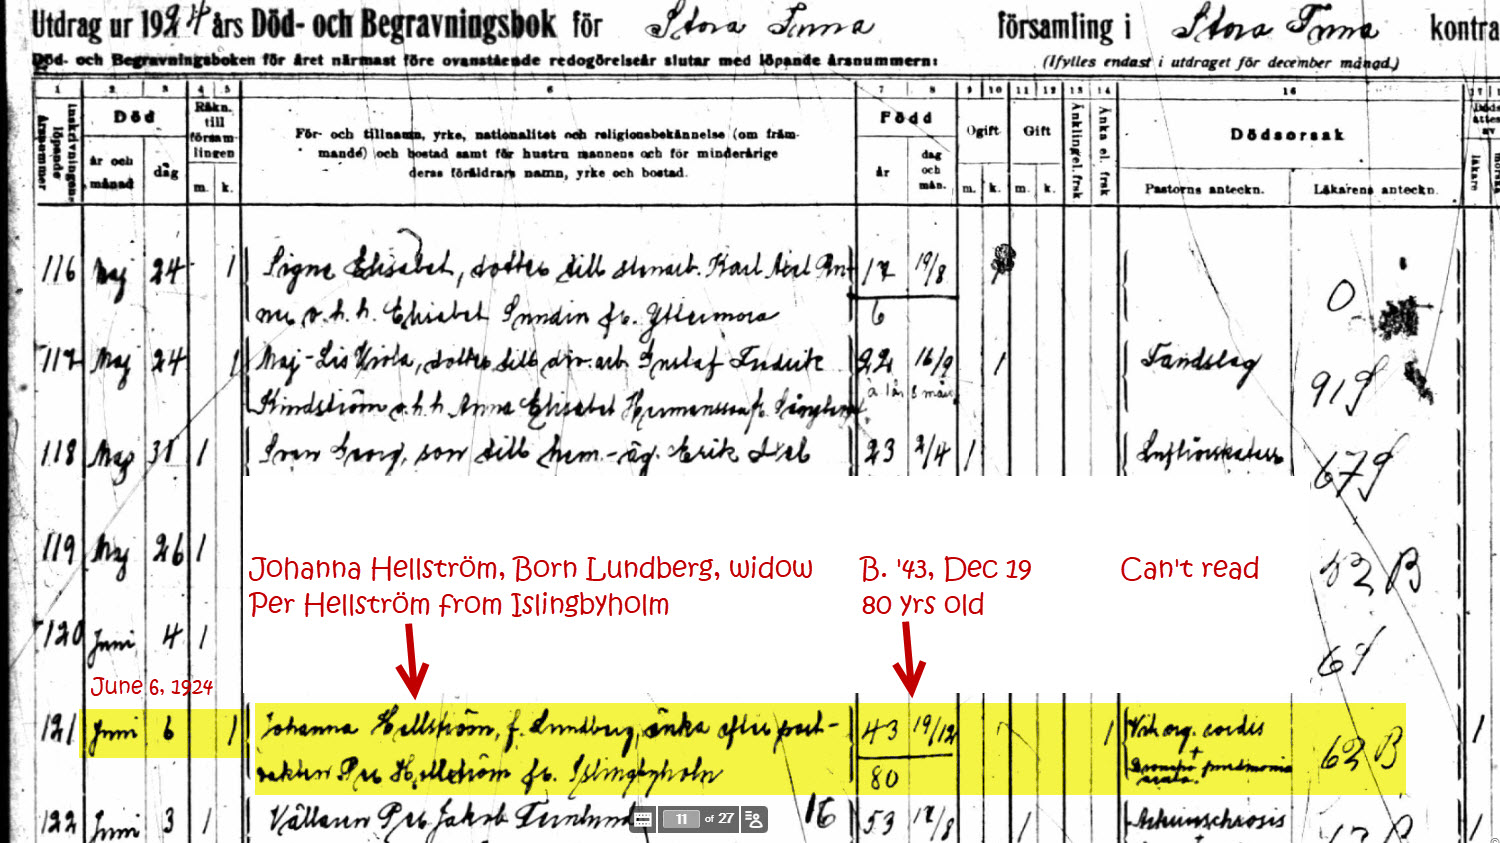 Utdrag ur 1924 års Död- och Begravningsbok för Stora Tuna församling i Stora Tuna kontra
Död- och Begravningsboken för året närmast före ovanstående redogörelseår slutar med löpande årsnummer: (Ifylles endast i utdraget för december månad.)
1 2 3 4 5 6 7 8 9 10 11 12 13 14 16 17
Inskrivningens löpande årsnummer
Död
år och månad
dag
Räkn. till församlingen
m. k.
För- och tillnamn, yrke, nationalitet och religionsbekännelse (om främ-
mande) och bostad samt för hustru mannens och för minderårige
deras föräldrars namn, yrke och bostad.
Född
år
dag och mån.
Ogift
m. k.
Gift
m. k.
Änkling el. frsk
Änka el. frsk
Dödsorsak
Pastorns anteckn. Läkarens anteckn.
läkare
116 Maj 24 1 Signe Elisabet, dotter till stenarb. Karl Axel 17 19/8 0
v. h. h. Elisabet Sundin fr. Yttermora 6
117 Maj 24 1 Maj-Lis Viola, dotter till div. arb. Gustaf Fredrik 22 16/9 1 Tandslag 919
Kindström o. h. h. Anna Elisabet
118 Maj 31 1 Sven Georg, son till hem.-äg. Erik 23 2/4 1 679
119 Maj 26 1 52 B
Johanna Hellström, Born Lundberg, widow B. '43, Dec 19 Can't read
Per Hellström from Islingbyholm 80 yrs old
120 Juni 4 1
June 6, 1924
121 Juni 6 1 Johanna Hellström, f. Lundberg, änka efter port- 43 19/12 1 Vit. org. cordis 62 B 1
vakten Per Hellström fr. Islingbyholm 80 + Broncho pneumonia
122 Juni 3 1 Vällaren Per Jakob 16 53 1 1
11 of 27